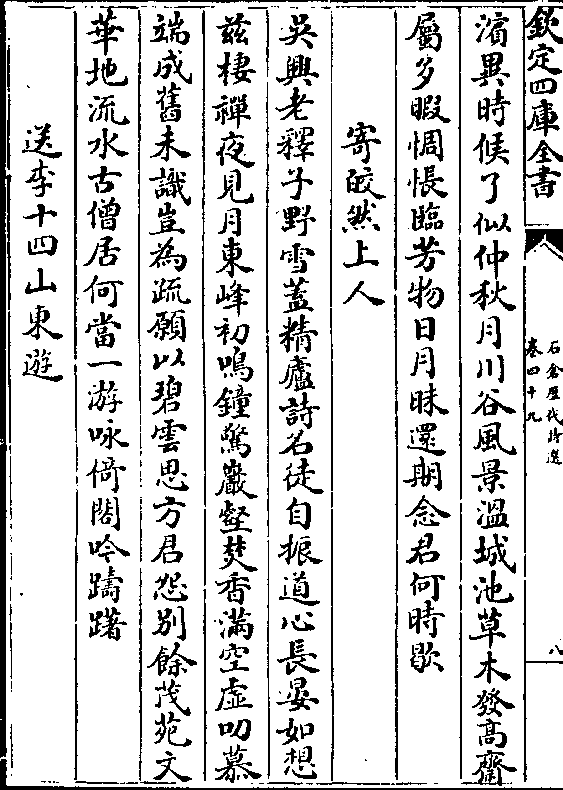 欽定四庫全書
石倉歷代詩選
卷四十九
八
濱異時候了似仲秋月川谷風景溫城池草木發高齋
屬多暇惆悵臨芳物日月昧還期念君何時歇
寄皎然上人
吳興老釋子野雪蓋精廬詩名徒自振道心長晏如想
兹棲禪夜見月東峰初鳴鐘驚巖壑焚香滿空虛叨慕
端成舊未識豈為疏願以碧雲思方君怨别餘茂苑文
華地流水古僧居何當一游咏倚閣吟躊躇
送李十四山東遊